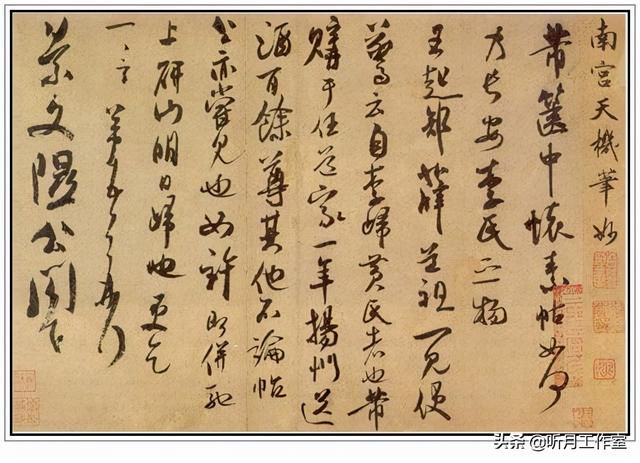 南宮天機筆妙
芾篋中懷素帖如何
乃長安李氏之物
王起部薛道祖一見便
驚云自李歸黃氏者也芾
購于任道家一年揚州送
酒百餘尊其他不論帖
公亦嘗見也如許即併馳
上研山明日歸也更乞
一言芾頓首再拜
景文隰公閣下
头条 @听月工作室